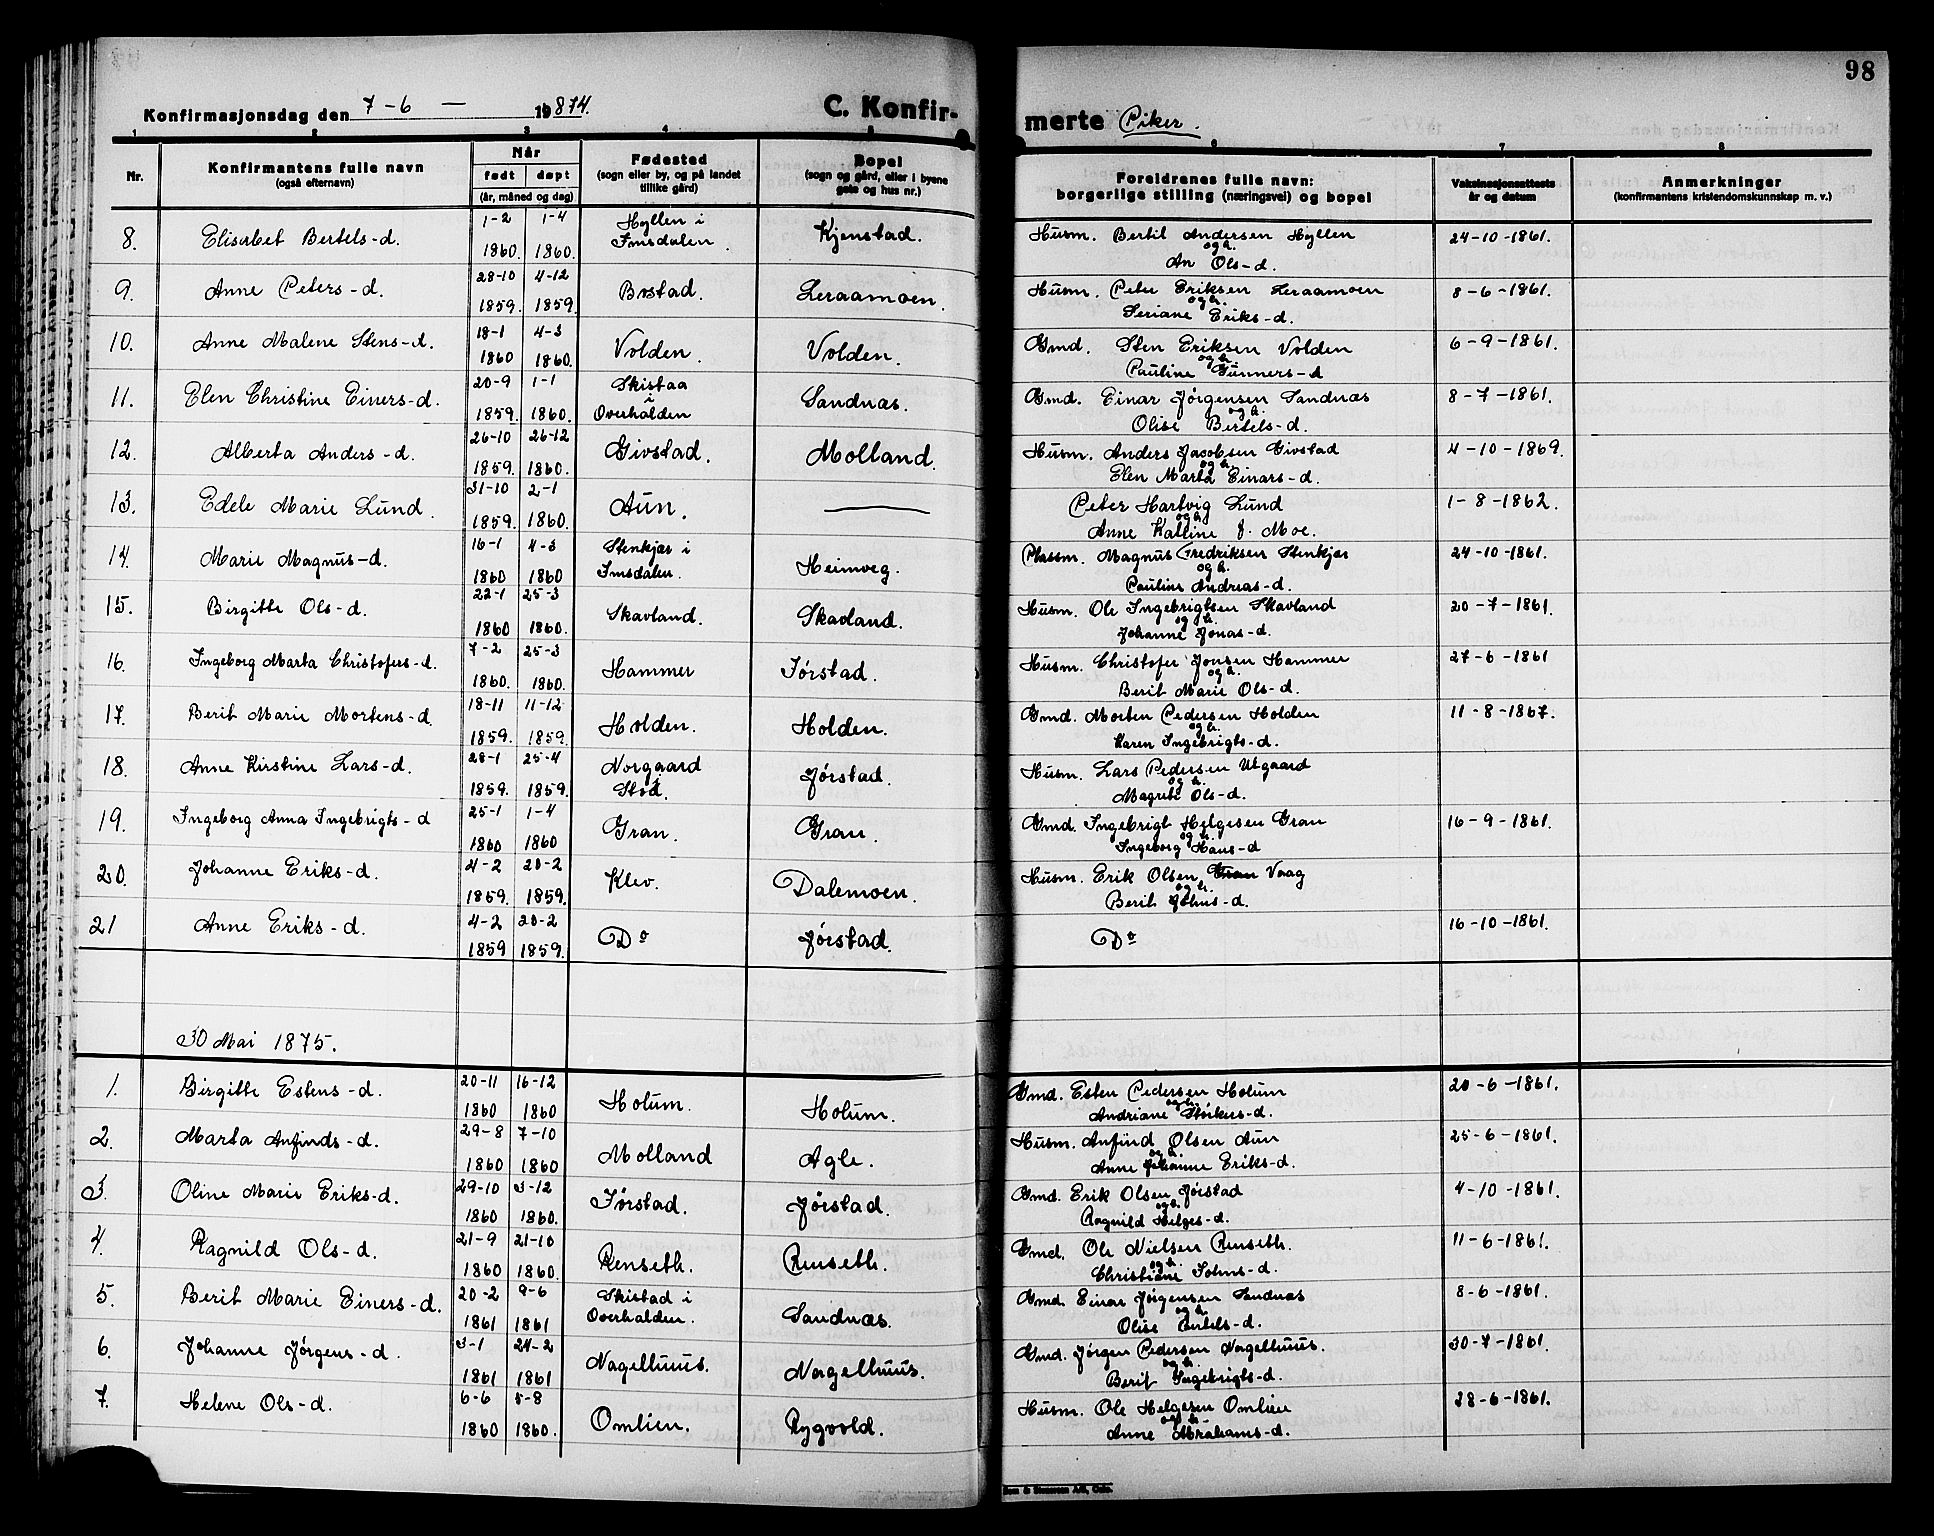 98
Konfirmasjonsdag den 7-6 — 19 874. C. Konfir- merte Piker.
1 2 3 4 5 6 7 8
Nr. Konfirmantens fulle navn (også efternavn) Når født døpt (år, måned og dag) Fødested (sogn eller by, og på landet tillike gård) Bopel (sogn og gård, eller i byene gate og hus nr.) Foreldrenes fulle navn: borgerlige stilling (næringsvei) og bopel Vaksinasjonsattests år og datum Anmerkninger (konfirmantens kristendomskunnskap m. v.)
8. Elisabet Bertels-d. 1-2 1860. 1-4 1860. Hyllen i Imsdalen. Kjenstad. Husm. Bertil Andersen Hyllen og h. An Ols-d. 24-10-1861.
9. Anne Peters-d. 28-10 1859. 4-12 1859. Bstad. Leraamoen. Husm. Peter Eriksen Leraamoen og h. Seriane Eriks-d. 8-6-1861.
10. Anne Malene Stens-d. 18-1 1860 4-3 1860. Volden. Volden. Gmd. Sten Eriksen Volden og h. Pauline Gunners-d 6-9-1861.
11. Elen Christine Einers-d. 20-9 1859. 1-1 1860. Skistaa i Overhalden Sandnæs. Gmd. Einar Jørgensen Sandnæs og h. Olise Bertels-d. 8-7-1861.
12. Alberta Anders-d. 26-10 1859. 26-12 1860. Givstad. Molland. Husm. Anders Jacobsen Givstad og h. Elen Marta Einars-d. 4-10-1869.
13. Edele Marie Lund. 31-10 1859. 2-1 1860. Aun. — Peter Hartvig Lund og h. Anne Katline f. Moe. 1-8-1862.
14. Marie Magnus-d. 16-1 1860 4-3 1860 Stenkjær i Imsdalen. Heimveg. Plassm. Magnus Fredriksen Stenkjær og h. Pauline Andreas-d. 24-10-1861.
15. Birgitte Ols-d. 22-1 1860 25-3 1860. Skavland. Skavland. Husm. Ole Ingebrigtsen Skavland og h. Johanne Jonas-d. 20-7-1861.
16. Ingeborg Marta Christofers-d. 7-2 1860. 25-3 1860. Hammer Jørstad. Husm. Christofer Jonsen Hammer og h. Berit Marie Ols-d. 27-6-1861
17. Berit Marie Mortens-d. 18-11 1859. 11-12 1859. Holden. Holden. Gmd. Morten Pedersen Holden og h. Karen Ingebrigts-d. 11-8-1867.
18. Anne Kirstine Lars-d. 28-1 1859. 25-4 1859. Norgaard i Stod. Jørstad. Husm. Lars Pedersen Utgaard og h. Magrete Ols-d.
19. Ingeborg Anna Ingebrigts-d 25-1 1860 1-4 1860 Gran. Gran. Gmd. Ingebrigt Helgesen Gran og h. Ingeborg Hans-d 16-9-1861.
20. Johanne Eriks-d. 4-2 1859. 20-2 1859. Klev. Dalemoen. Husm. Erik Olsen Vaag og h. Berit Johns-d.
21 Anne Eriks-d. 4-2 1859 20-2 1859. Do Jørstad. Do 16-10-1861.
30 Mai 1875.
1. Birgitte Estens-d. 20-11 1860 16-12 1860 Holum. Holum. Gmd. Esten Pedersen Holum og h. Andriane Størkers-d. 20-6-1861.
2. Marta Anfinds-d. 29-8 1860 7-10 1860 Molland Agle. Husm. Anfind Olsen Aun og h. Anne Johanne Eriks-d. 25-6-1861.
3. Oline Marie Eriks-d. 29-10 1860 3-12 1860. Jørstad. Jørstad. Gmd. Erik Olsen Jørstad og h. Ragnild Helges-d. 4-10-1861.
4. Ragnild Ols-d. 21-9 1860 21-10 1860. Renseth. Renseth. Gmd. Ole Nielsen Renseth. og h. Christiane Johns-d. 11-6-1861.
5. Berit Marie Einers-d. 20-2 1861 9-6 1861 Skistad i Overhalden. Sandnæs. Gmd. Einar Jørgensen Sandnæs og h. Olise Bertels-d. 8-6-1861.
6. Johanne Jørgens-d. 3-1 1861 24-2 1861 Nagelhuus. Nagelhuus. Gmd. Jørgen Pedersen Nagelhuus. og h. Berit Ingebrigts-d. 30-7-1861.
7. Helene Ols-d. 6-6 1860 5-8 1860. Omlien. Rygvold. Husm. Ole Helgesen Omlien og h. Anne Abrahams-d. 28-6-1861.
& Stenersen A/S, Oslo.